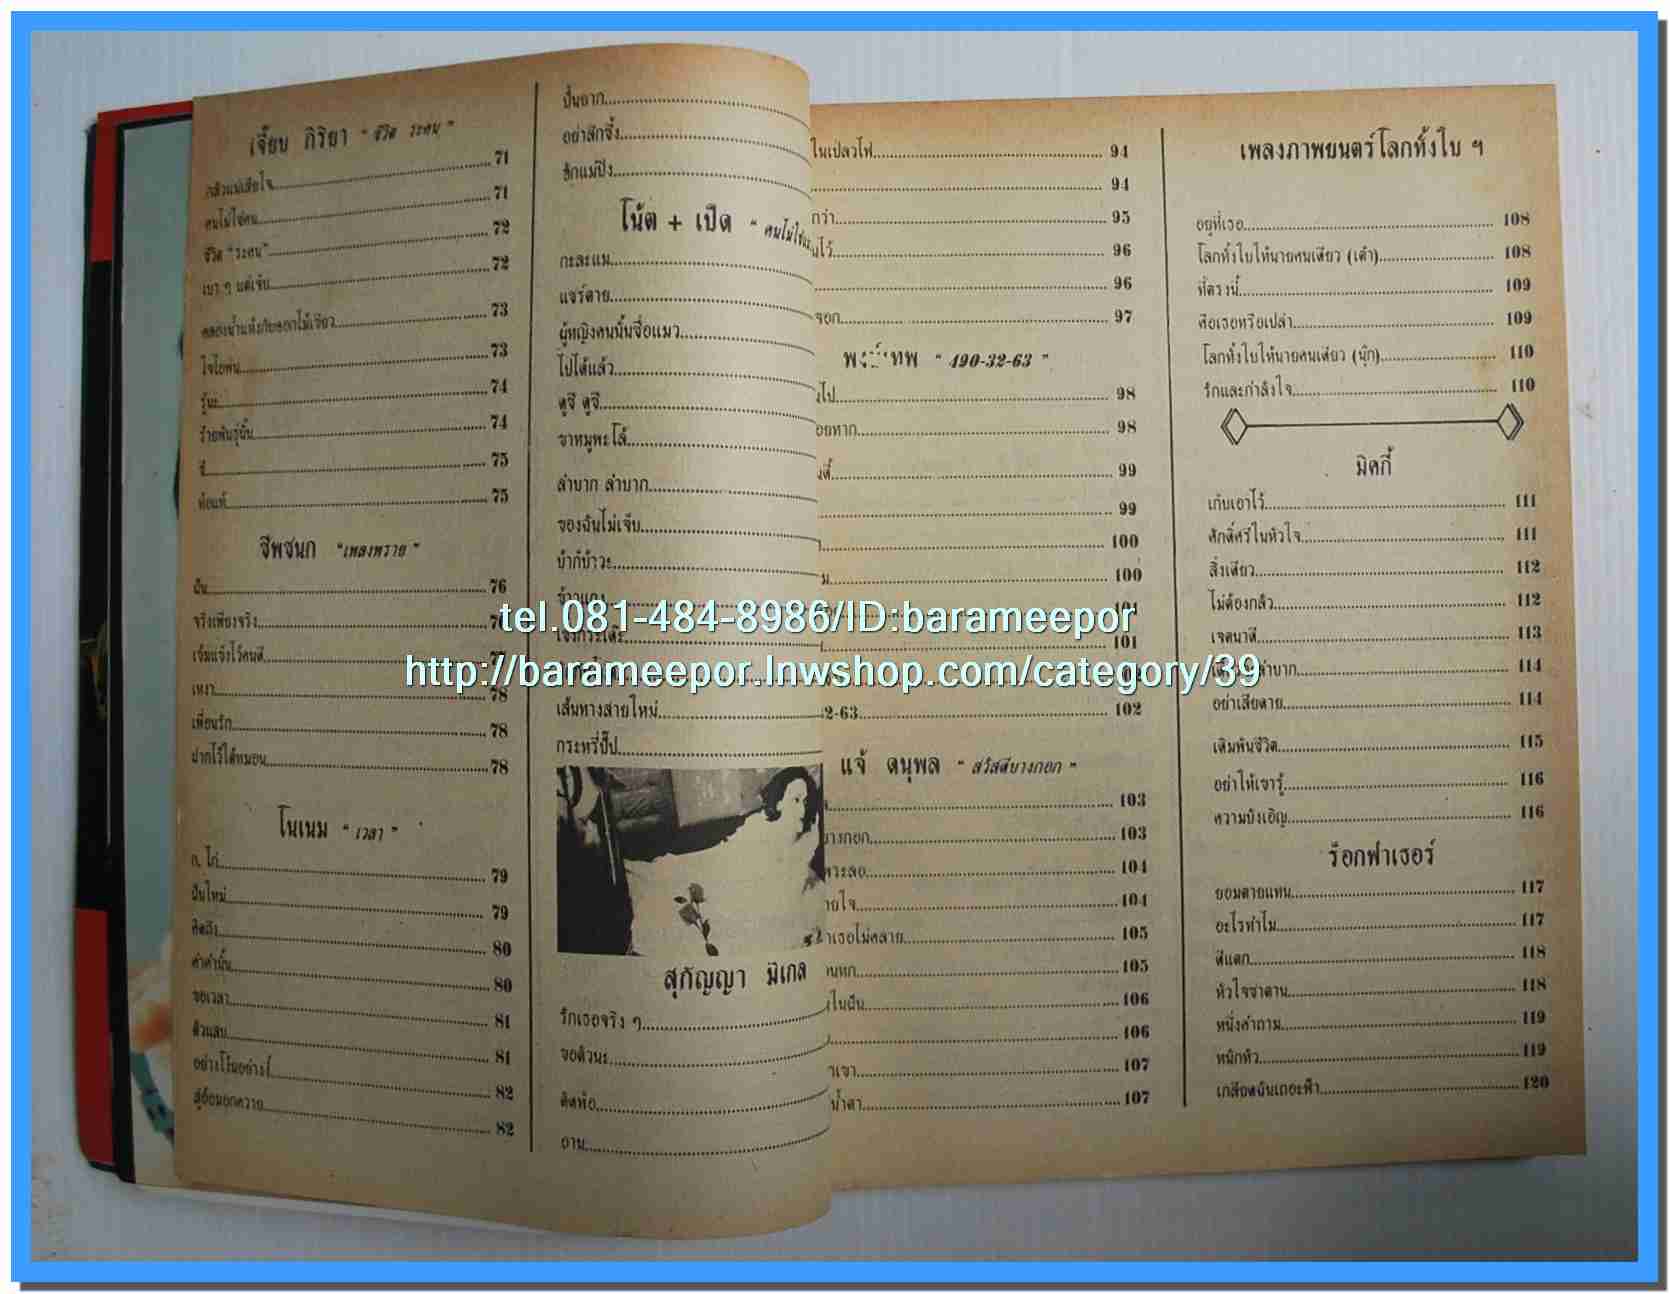 เจี๊ยบ ภิริยา " ชีวิต ระคน "
กลัวแม่เสียใจ 71
คนไม่ใช่คน 71
ชีวิต "ระคน" 72
เบา ๆ แต่เจ็บ 72
คลองน้ำแห้งกับดอกไม้เขียว 73
ใจโยพัน 73
รู้นะ 74
ร้ายพันธุ์นั้น 74
ชี 75
ท้อแท้ 75
ชีพชนก "เพลงพราย "
ฉัน 76
จริงเพียงจริง
เจิ่มแจ้งไว้คนดี
เหงา 78
เพื่อนรัก 78
ฝากไว้ใต้หมอน 78
โนเนม " เวลา "
ก. ไก่ 79
ฝันใหม่ 79
คิดถึง 80
ค่าคำนั้น 80
ขอเวลา 81
ตัวแสบ 81
อย่างไรอย่างไร 82
สู้อ้อมอกควาย 82
ปั้นยาก
อย่าลึกซึ้ง
ฮักแม่ปิง
โน้ต + เปิด " คนไม่ใช่
กะละแม
แจร์ตาย
ผู้หญิงคนนั้นชื่อแมว
ไปได้แล้ว
ดูจิ ดูจี
ขาหมูพะโล้
ลำบาก ลำบาก
ของฉันไม่เจ็บ
บ๋ากับ๋าวะ
ข้าวแกง
เส้นทางสายใหม่
กระหรี่ปั๊ป
สุกัญญา มิเกล
รักเธอจริง ๆ
ขอตัวนะ
คิดท้อ
ถาน
ในเปลวไฟ 94
94
กว่า 95
ไว้ 96
96
จอก 97
พงษ์เทพ " 490-32-63 "
งไป 98
อยหาก 98
99
99
100
ม 100
101
101
2-63 102
แจ้ ดนุพล " สวัสดีบางกอก "
103
บางกอก 103
พระลอ 104
ายใจ 104
าเธอไม่คลาย 105
นหก 105
ในฝัน 106
106
าเขา 107
น้ำตา 107
เพลงภาพยนตร์โลกทั้งใบ ฯ
อยู่ที่เธอ 108
โลกทั้งใบให้นายคนเดียว (เต๋า) 108
ที่ตรงนี้ 109
คือเธอหรือเปล่า 109
โลกทั้งใบให้นายคนเดียว (นุ๊ก) 110
รักและกำลังใจ 110
มิคกี้
เก็บเอาไว้ 111
ศักดิ์ศรีในหัวใจ 111
สิ่งเดียว 112
ไม่ต้องกลัว 112
เจตนาดี 113
ลำบาก 114
อย่าเสียดาย 114
เดิมพันชีวิต 115
อย่าให้เขารู้ 116
ความบังเอิญ 116
ร็อกฟาเธอร์
ยอมตายแทน 117
อะไรทำไม 117
ตีแตก 118
หัวใจซาตาน 118
หนึ่งคำถาม 119
หนักหัว 119
เกลียดฉันเถอะฟ้า 120
tel.081-484-8986/ID:barameepor
http://barameepor.lnwshop.com/category/39